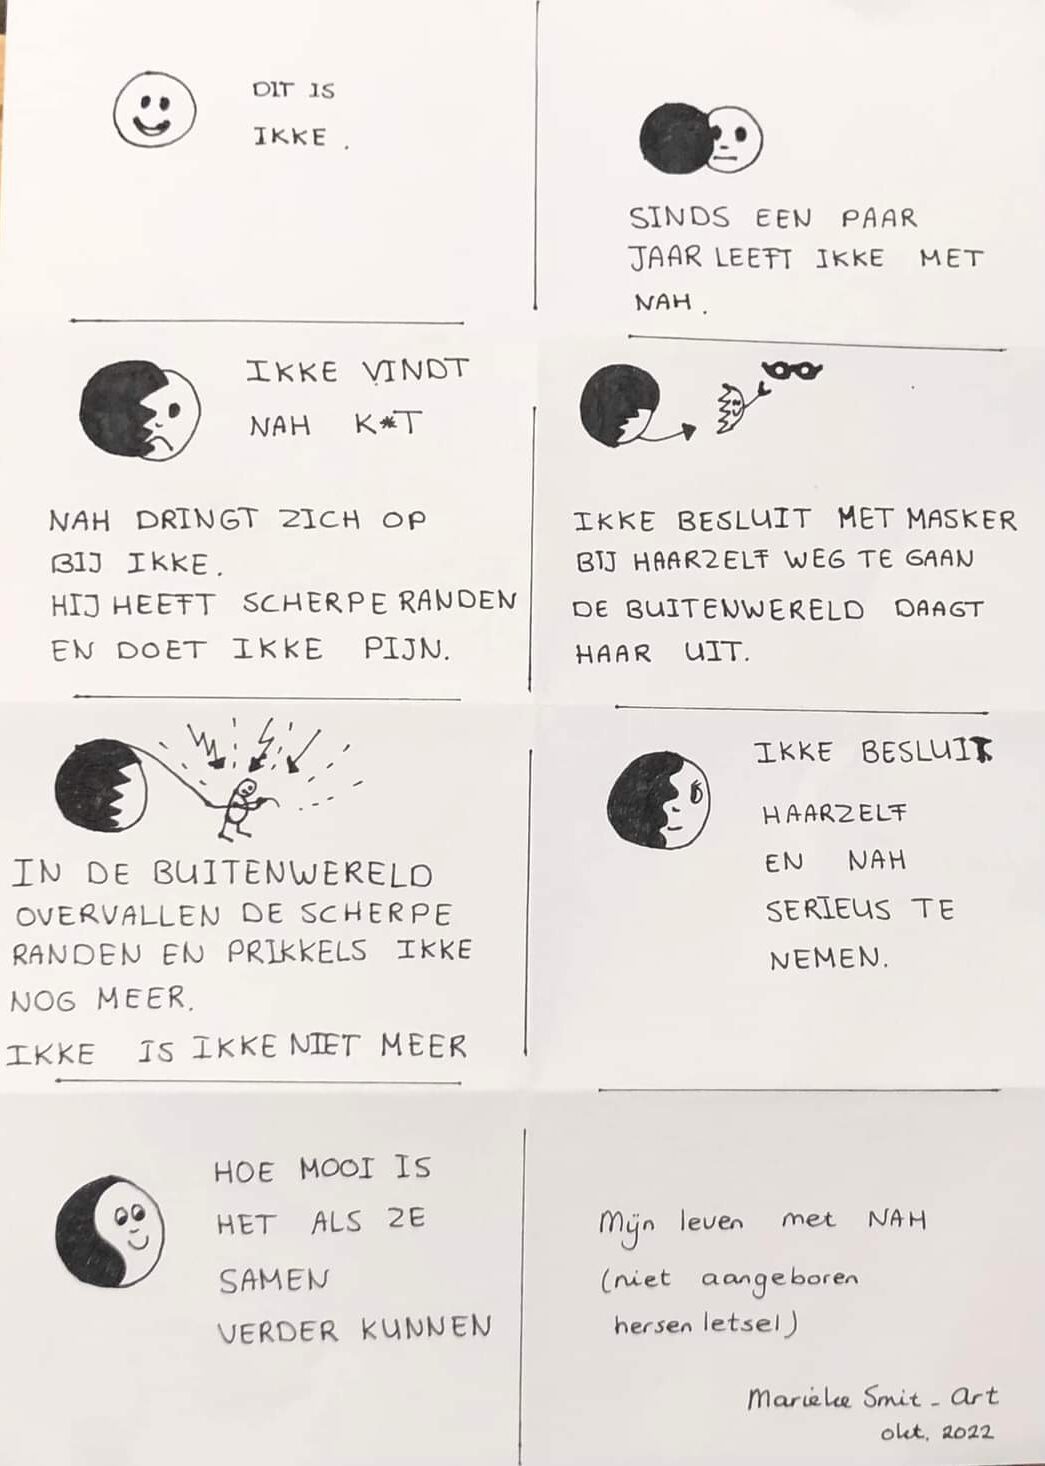 DIT IS
IKKE.
SINDS EEN PAAR
JAAR LEEFT IKKE MET
NAH.
IKKE VINDT
NAH K*T
NAH DRINGT ZICH OP
BIJ IKKE.
HIJ HEEFT SCHERPE RANDEN
EN DOET IKKE PIJN.
IKKE BESLUIT MET MASKER
BIJ HAARZELF WEG TE GAAN
DE BUITENWERELD DAAGT
HAAR UIT.
IN DE BUITENWERELD
OVERVALLEN DE SCHERPE
RANDEN EN PRIKKELS IKKE
NOG MEER.
IKKE IS IKKE NIET MEER
IKKE BESLUIT
HAARZELF
EN NAH
SERIEUS TE
NEMEN.
HOE MOOI IS
HET ALS ZE
SAMEN
VERDER KUNNEN
Mijn leven met NAH
(niet aangeboren
hersenletsel)
Marieke Smit - Art
okt. 2022